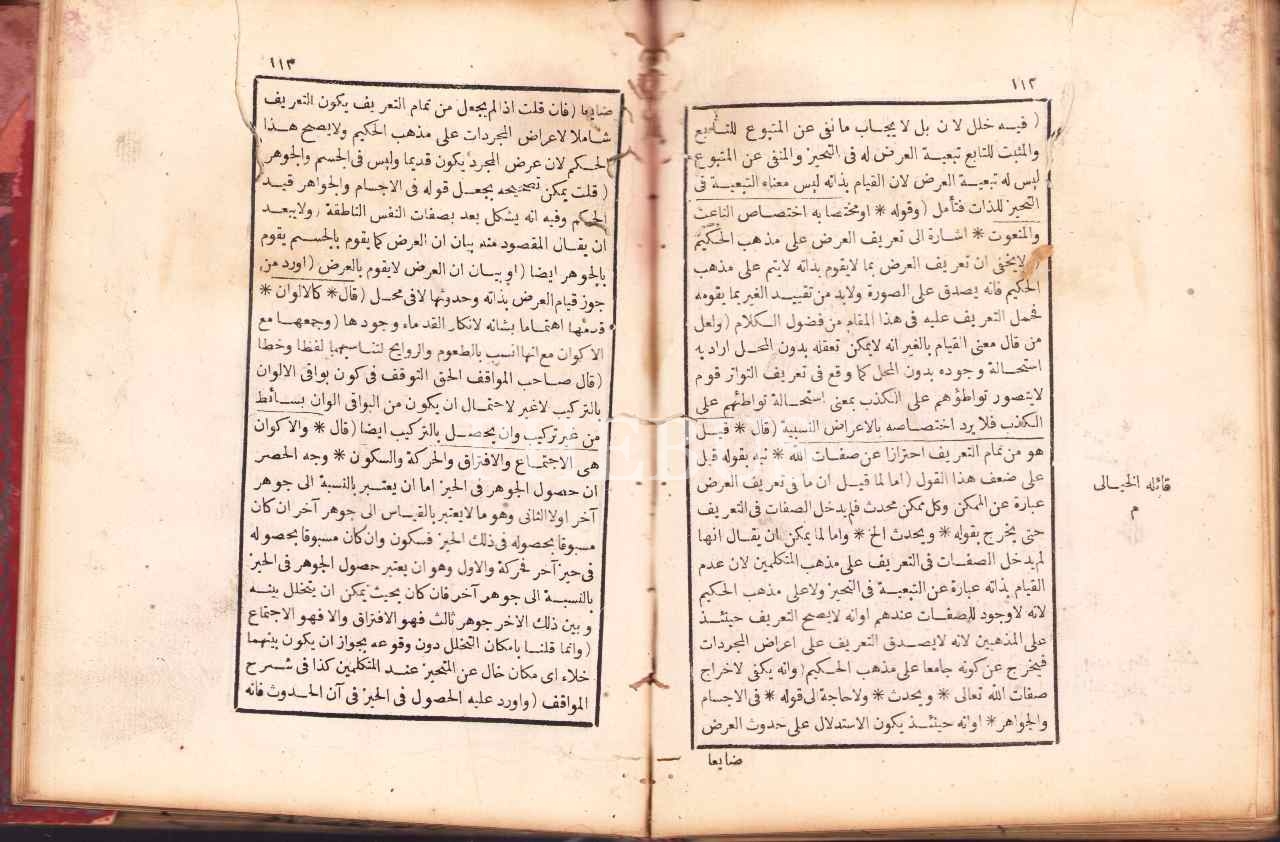 ١١٢
( فيه خلل لان بل لايجاب ما نفى عن المتبوع للتابع
والمثبت للتابع تبعية العرض له فى التحيز والمنفى عن المتبوع
ليس له تبعية العرض لان القيام بذاته ليس معناه التبعية فى
التحيز للذات فتأمل (وقوله * او مختصا به اختصاص الناعت
والمنعوت * اشارة الى تعريف العرض على مذهب الحكيم
( لايخفى ان تعريف العرض بما لايقوم بذاته لايتم على مذهب
الحكيم فانه يصدق على الصورة ولابد من تقييد الغير بما يقومه
فحمل التعريف عليه فى هذا المقام من فضول الكلام (ولعل
من قال معنى القيام بالغير انه لايمكن تعقله بدون المحل اراد به
استحالة وجوده بدون المحل كما وقع فى تعريف التواتر قوم
لايتصور تواطؤهم على الكذب بمعنى استحالة تواطئهم على
الكذب فلا يرد اختصاصه بالاعراض النسبية (قال * قيل
هو من تمام التعريف احترازا عن صفات الله * نبه بقوله قيل
على ضعف هذا القول (اما لما قيل ان ما فى تعريف العرض
عبارة عن الممكن وكل ممكن محدث فلم يدخل الصفات فى التعريف
حتى يخرج بقوله * ويحدث الخ * واما لما يمكن ان يقال انها
لم يدخل الصفات فى التعريف على مذهب المتكلمين لان عدم
القيام بذاته عبارة عن التبعية فى التحيز ولا على مذهب الحكيم
لانه لاوجود للصفات عندهم اوانه لايصح التعريف حينئذ
على المذهبين لانه لايصدق التعريف على اعراض المجردات
فيخرج عن كونه جامعا على مذهب الحكيم (وانه يكفى لاخراج
صفات الله تعالى * ويحدث * ولاحاجة الى قوله * فى الاجسام
والجواهر * اوانه حينئذ يكون الاستدلال على حدوث العرض
ضايعا
قائله الخيالى
م
١١٣
ضايعا (فان قلت اذا لم يجعل من تمام التعريف يكون التعريف
شاملا لاعراض المجردات على مذهب الحكيم ولايصح هذا
الحكم لان عرض المجرد يكون قديما وليس فى الجسم والجوهر
( قلت يمكن تصحيحه بجعل قوله فى الاجسام والجواهر قيد
الحكم وفيه انه يشكل بعد بصفات النفس الناطقة (ولايبعد
ان يقال المقصود منه بيان ان العرض كما يقوم بالجسم يقوم
بالجوهر ايضا (او بيان ان العرض لايقوم بالعرض (اورد من
جوز قيام العرض بذاته وحدوثها لافى محل (قال * كالالوان *
قدمها اهتماما بشانه لانكار القدماء وجودها (وجمعها مع
الاكوان مع انها انسب بالطعوم والروايح لتناسبهما لفظا وخطا
(قال صاحب المواقف الحق التوقف فى كون بواقى الالوان
بالتركيب لاغير لاحتمال ان يكون من البواقى الوان بسائط
من غير تركيب وان يحصل بالتركيب ايضا (قال * والاكوان
هى الاجتماع والافتراق والحركة والسكون * وجه الحصر
ان حصول الجوهر فى الحيز اما ان يعتبر بالنسبة الى جوهر
آخر اولا الثانى وهو ما لايعتبر بالقياس الى جوهر آخر ان كان
مسبوقا بحصوله فى ذلك الحيز فسكون وان كان مسبوقا بحصوله
فى حيز آخر فحركة والاول وهو ان يعتبر حصول الجوهر فى الحيز
بالنسبة الى جوهر آخر فان كان بحيث يمكن ان يتخلل بينه
وبين ذلك الاخر جوهر ثالث فهو الافتراق والا فهو الاجتماع
(وانما قلنا بامكان التخلل دون وقوعه بجواز ان يكون بينهما
خلاء اى مكان خال عن المتحيز عند المتكلمين كذا فى شرح
المواقف (واورد عليه الحصول فى الحيز فى آن الحدوث فانه